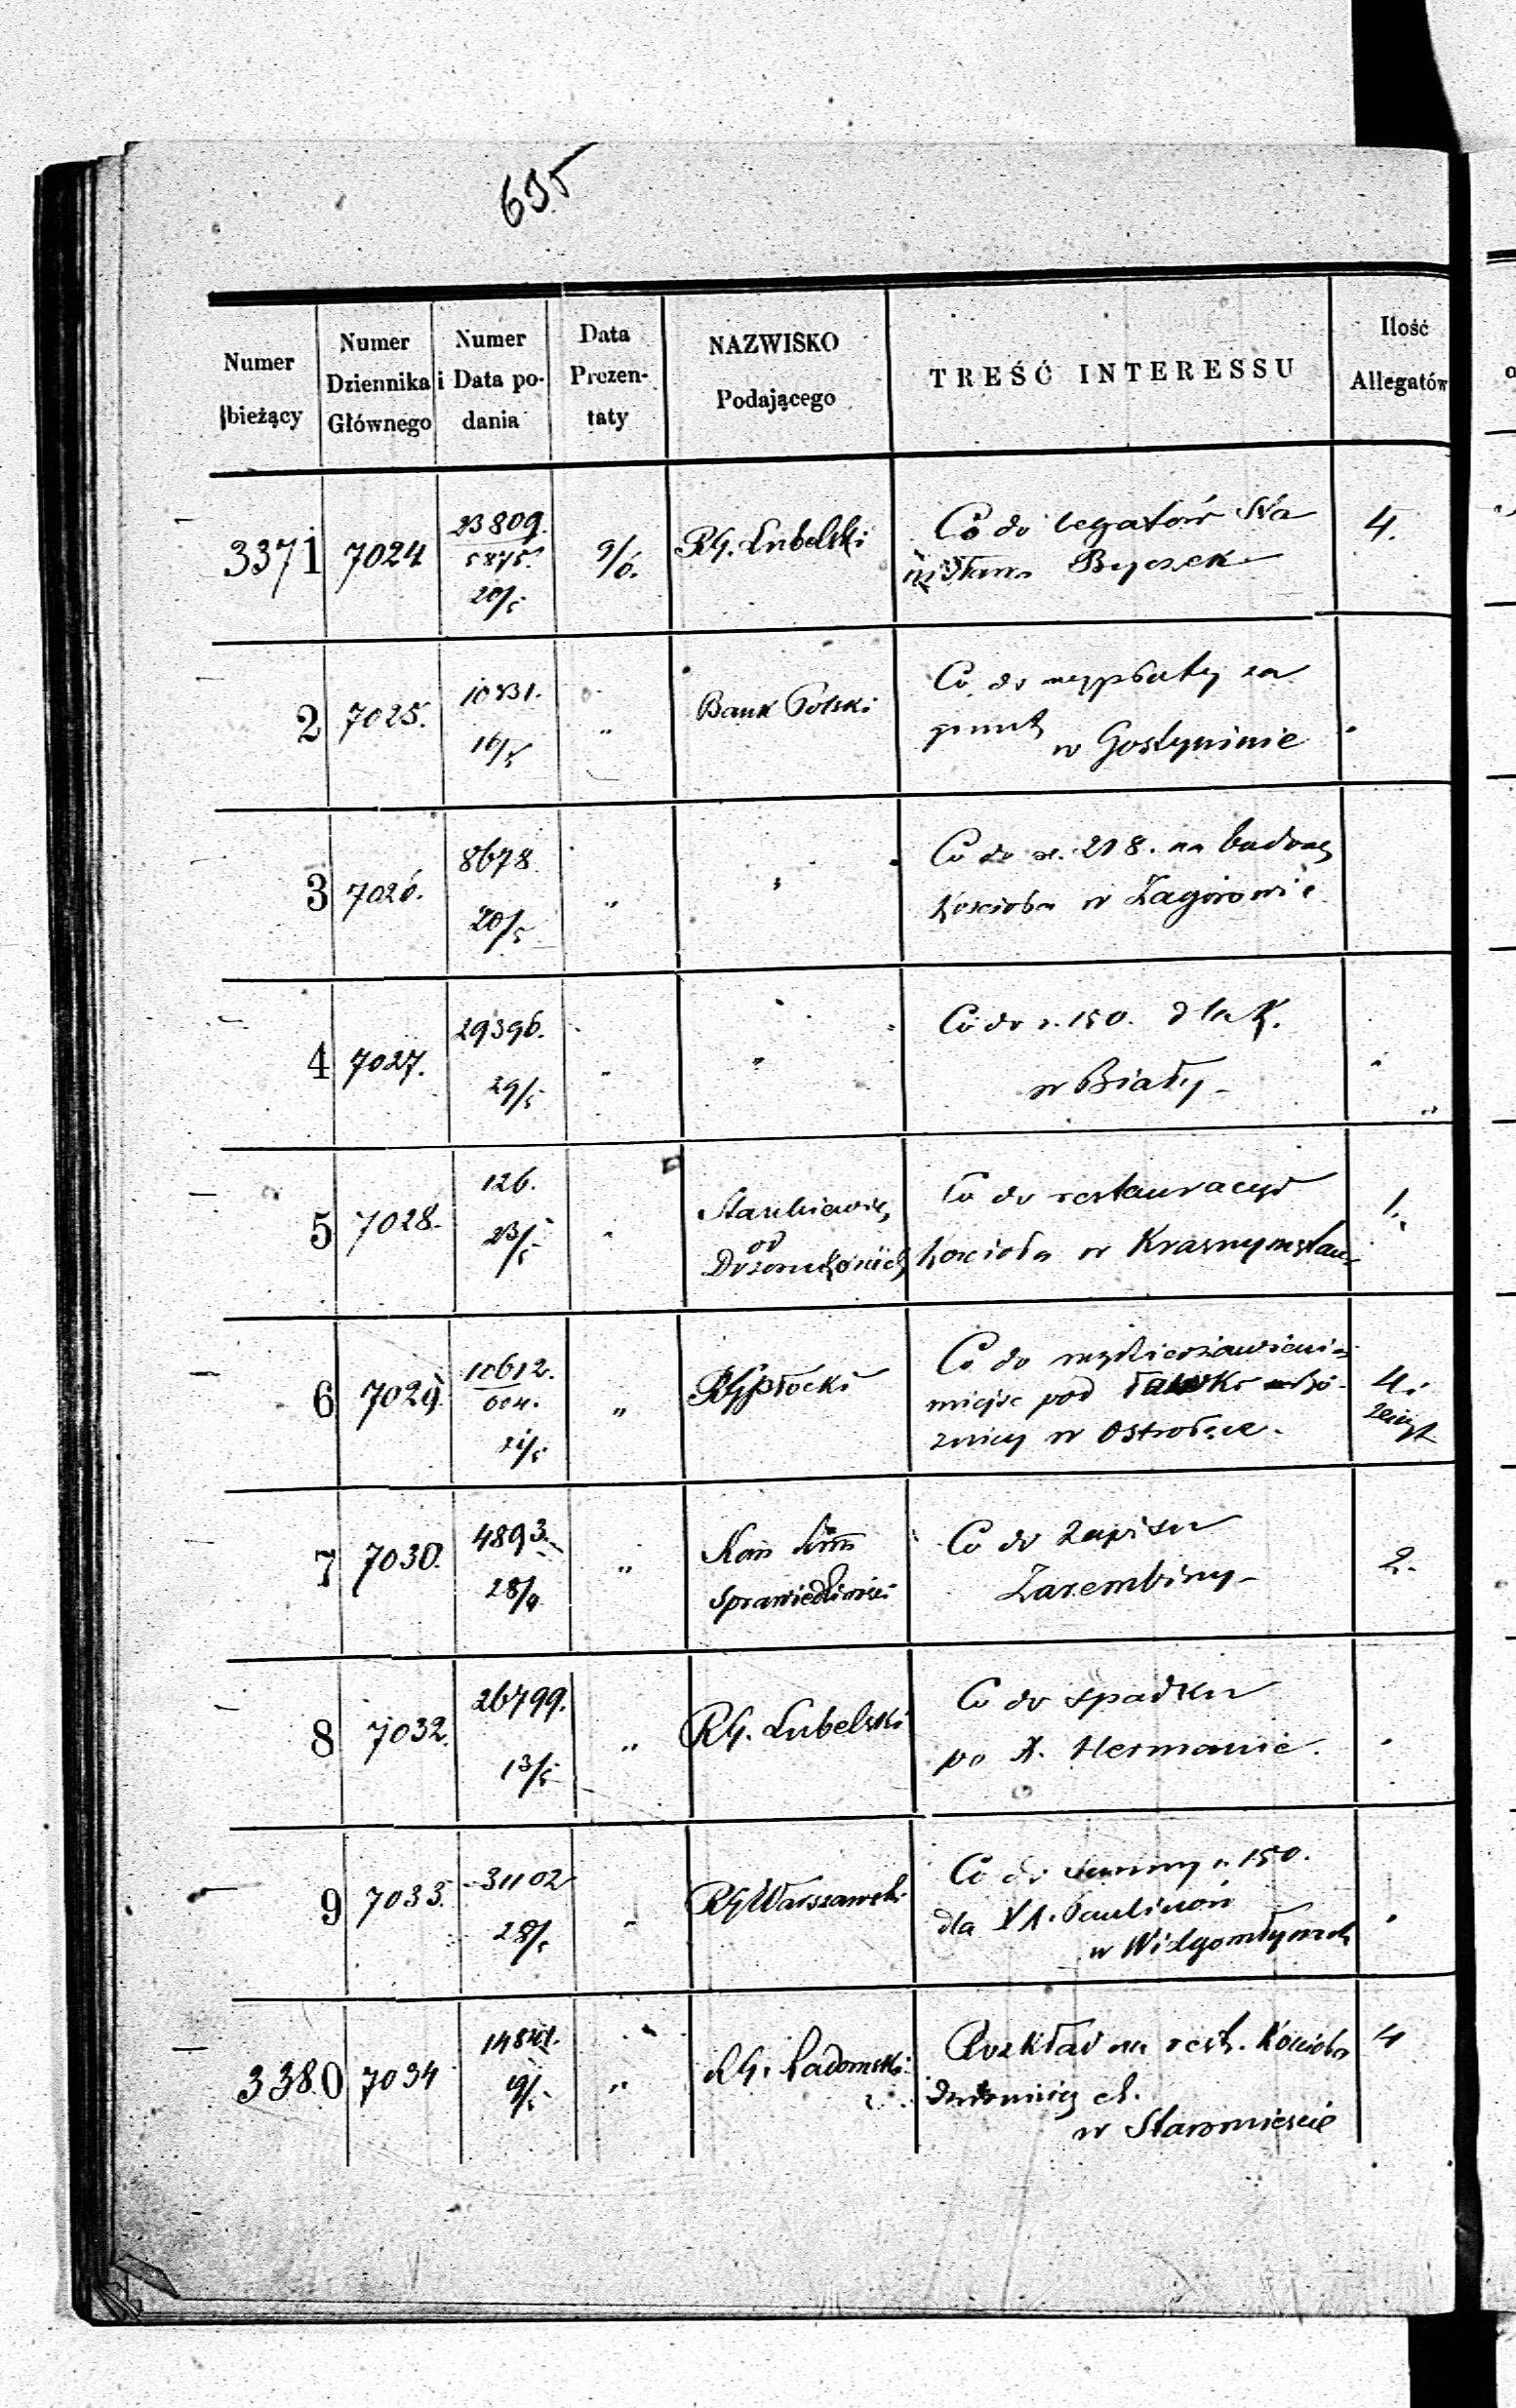 695
Numer bieżący
Numer Dziennika Głównego
Numer i Data podania
Data Prezentaty
NAZWISKO Podającego
TREŚĆ INTERESSU
Ilość Allegatów
3371 7024 23809. 9/6. RG. Lubelski Co do legatów 4.
5875. Byczek
20/5
2 7025. 10831. " Bank Polski Co do wypłaty za
16/5 grunt w Gostyninie
3 7026. 8678. " " Co do 218. na budowę
20/5 kościoła w Zagórowie
4 7027. 29396. " " Co do r. 150. dla K.
29/5 w Biały
5 7028. 126. " Co do restauracyi 1.
23/5 od kościoła w Krasnymstawie
6 7029. 10612. " RG Płocki Co do 4.
604. miejsc pod
21/5 w Ostrołęce.
7 7030. 4893. " Kom Co do Zapisu 2.
28/4 Sprawiedliwości Zarembiny
8 7032. 26799. " RG. Lubelski Co do spadku
13/5 po X. Hermanie.
9 7033. 31102 " RG Warszawski Co do summy r. 150.
28/5 dla XX. Paulinów
w Wielgomłynach
3380 7034 " RG. Radomski Rozkład na rest. Kościoła 4
9/5
w Staromieście